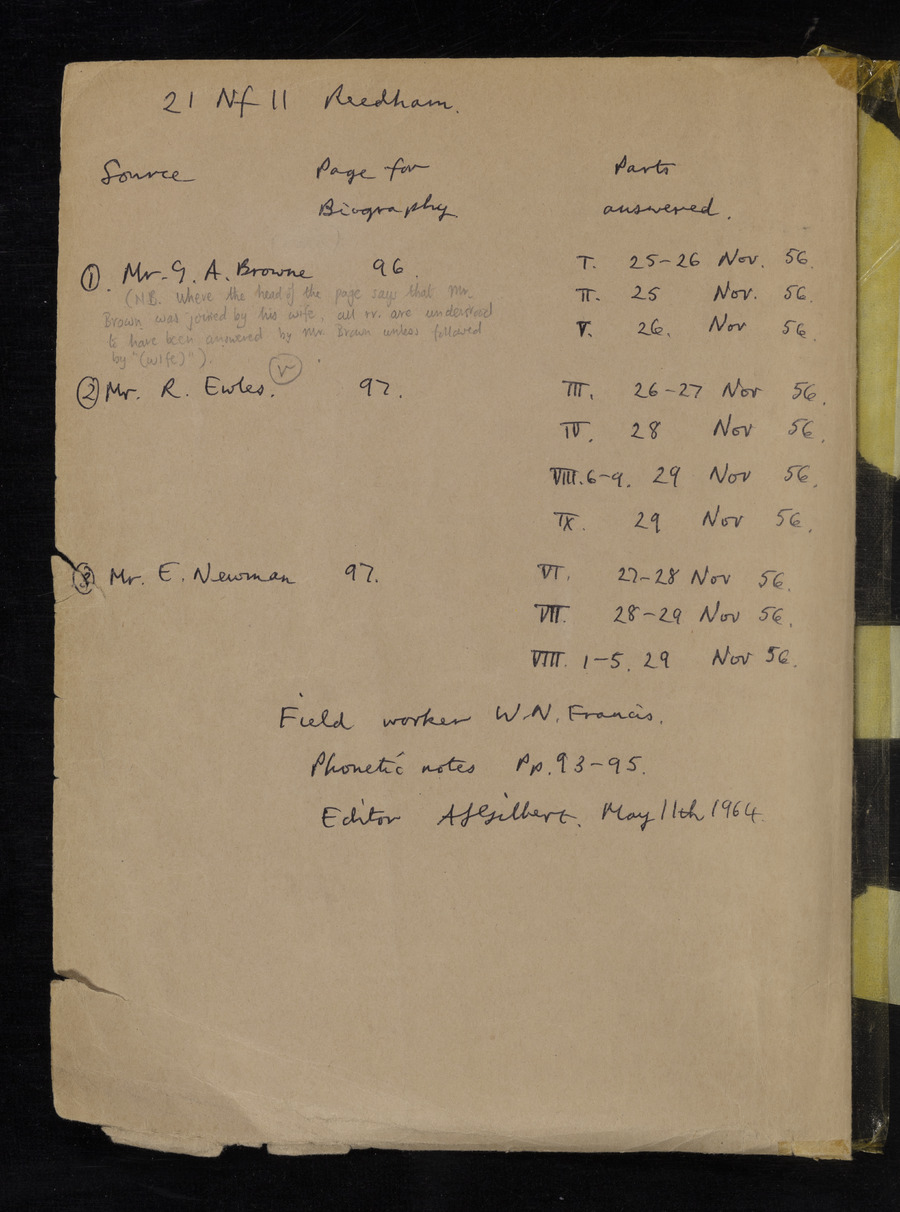 21 Nf 11 Reedham.
Source Page for Parts
Biography answered.
① Mr. G. A. Browne 96. I. 25-26 Nov. 56.
(NB. Where the head of the page says that Mr. II. 25 Nov. 56.
Brown was joined by his wife, all rr. are understood V. 26. Nov 56.
to have been answered by Mr. Brown unless followed
by "(wife)").
② Mr. R. Ewles. 97. III. 26-27 Nov 56.
IV. 28 Nov 56.
VIII. 6-9. 29 Nov 56.
IX. 29 Nov 56.
③ Mr. E. Newman 97. VI. 27-28 Nov 56.
VII. 28-29 Nov 56.
VIII. 1-5. 29 Nov 56.
Field worker W.N. Francis.
Phonetic notes Pp. 93-95.
Editor Gilbert. May 11th 1964.